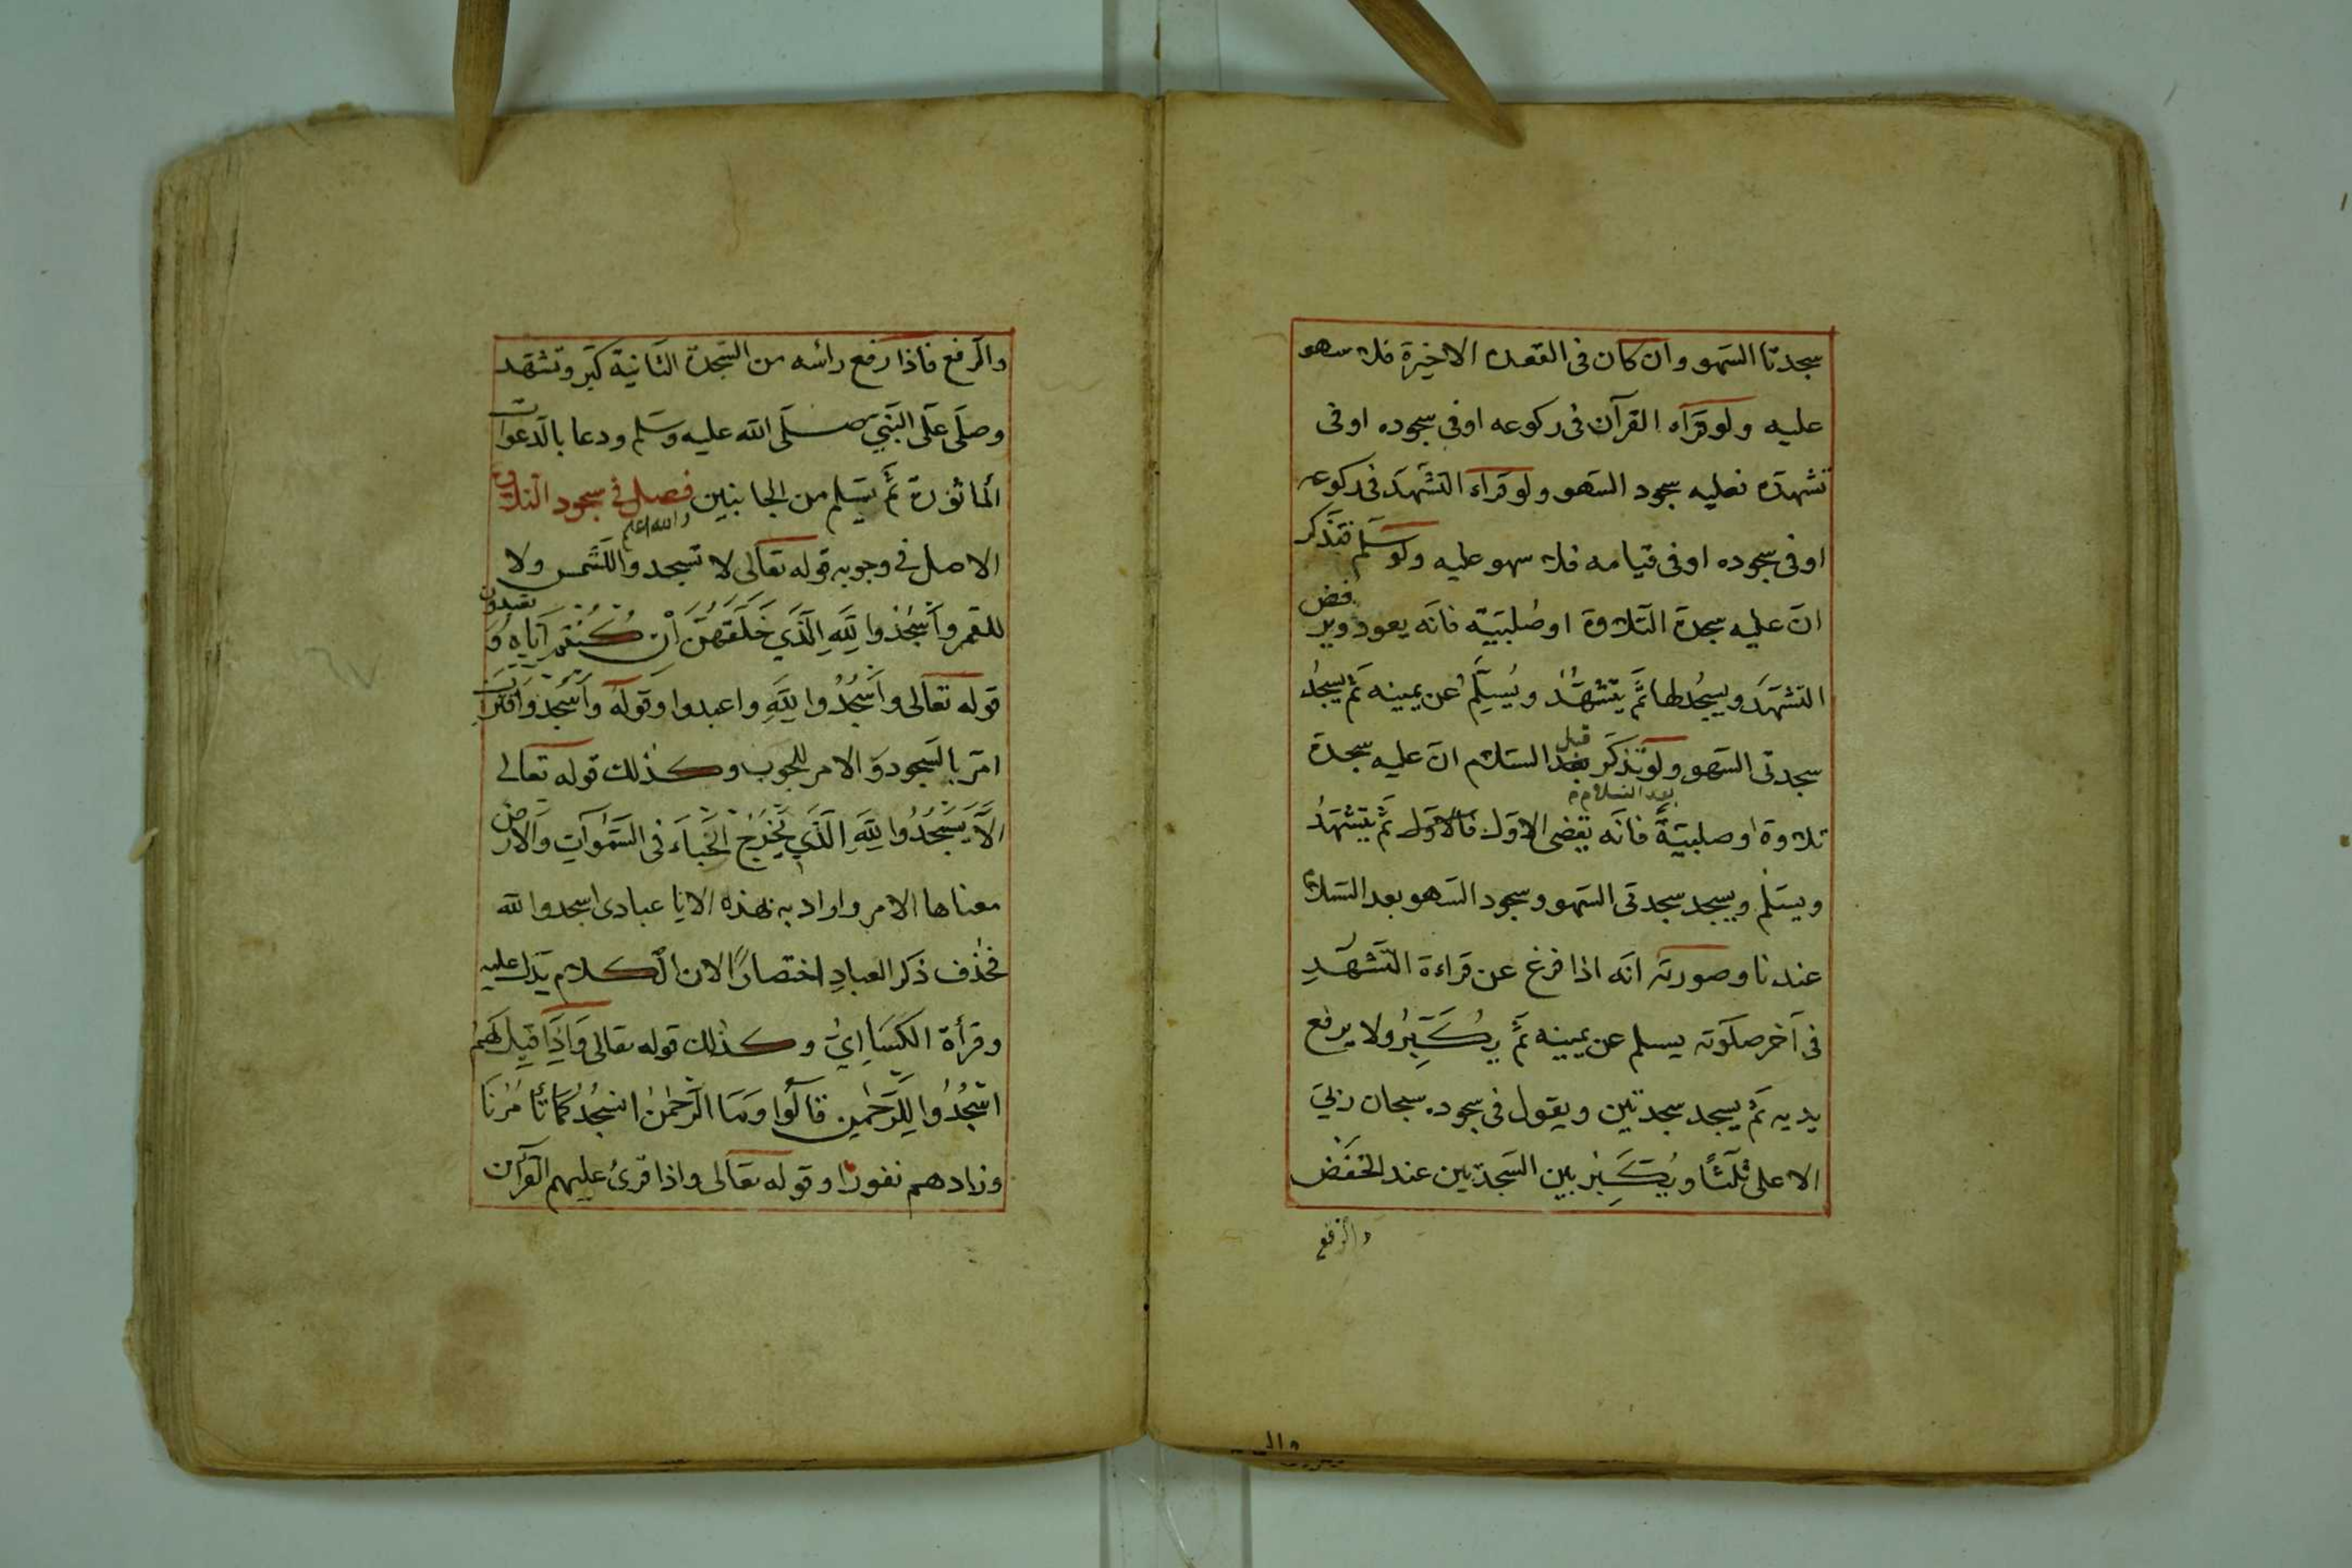 سجدتا السهو وان كان فى القعدة الاخيرة فلا سهو
عليه ولو قرآه القرآن فى ركوعه او فى سجوده او فى
تشهده فعليه سجود السهو ولو قراء التشهد فى ركوعه
او فى سجوده او فى قيامه فلا سهو عليه ولو سلم فتذكر
ان عليه سجدة التلاوة او صلبيته فانه يعود ويرفض
التشهد ويسجد لها ثم يتشهد ويسلم عن يمينه ثم يسجد
سجدتى السهو ولو تذكر بعد السلام ان عليه سجدة
قبل
بعد السلام
تلاوة او صلبية فانه يقضى الاول فالاول ثم يتشهد
ويسلم ويسجد سجدتى السهو وسجود السهو بعد السلام
عندنا وصورته انه اذا فرغ عن قراءة التشهد
فى آخر صلوته يسلم عن يمينه ثم يكبر ولا يرفع
يديه ثم يسجد سجدتين ويقول فى سجوده سبحان ربى
الاعلى ثلثا ويكبر بين السجدتين عند الخفض
والرفع
والرفع فاذا رفع رائسه من السجدة الثانية كبر وتشهد
وصلى على النبى صلى الله عليه وسلم ودعا بالدعوات
الماثورة ثم يسلم من الجانبين فصل فى سجود التلاوة
والله اعلم
الاصل فى وجوبه قوله تعالى لا تسجدوا للشمس ولا
للقمر واسجدوا لله الذى خلقهن ان كنتم اياه تعبدون و
قوله تعالى واسجدوا لله واعبدوا وقوله واسجد واقترب
امر بالسجود والامر للجوب وكذلك قوله تعالى
الا يسجدوا لله الذى يخرج الخباء فى السموات والارض
معناها الامر واراد به بهذه الايا عبادى اسجدوا لله
فحذف ذكر العباد اختصارا لان الكلام يدل عليه
وقرأة الكساإى وكذلك قوله تعالى واذا قيل لهم
اسجدوا للرحمن قالوا وما الرحمن انسجد لما تأمرنا
وزادهم نفورا وقوله تعالى واذا قرئ عليهم القرآن